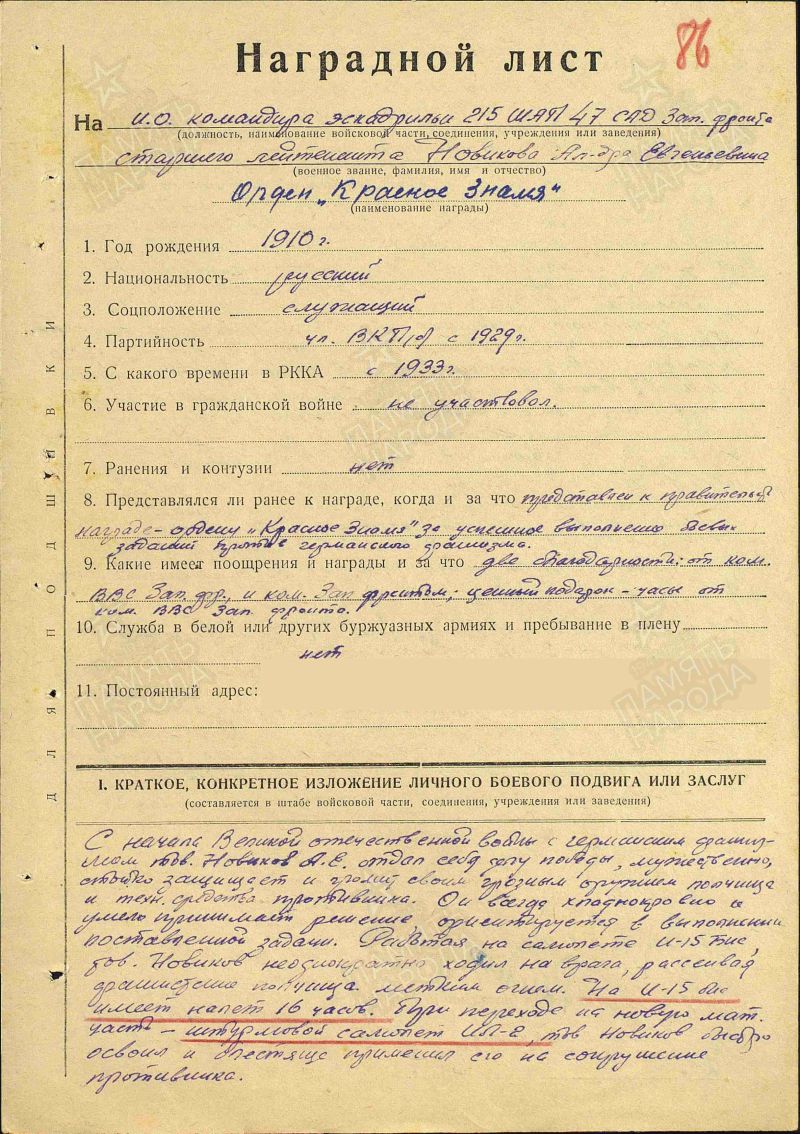 86
Наградной лист
На И.О. командира эскадрильи 215 ШАП 47 САД Зап. фронта
(должность, наименование войсковой части, соединения, учреждения или заведения)
старшего лейтенанта Новикова Ал-дра Евгеньевича
(военное звание, фамилия, имя и отчество)
Орден „Красное Знамя"
(наименование награды)
1. Год рождения 1910 г.
2. Национальность русский
3. Соцположение служащий
4. Партийность чл. ВКП/б/ с 1929 г.
5. С какого времени в РККА с 1933 г.
6. Участие в гражданской войне не участвовал.
7. Ранения и контузии нет
8. Представлялся ли ранее к награде, когда и за что представлен к правительств
награде - ордену „Красное Знамя" за успешное выполнение боевых
заданий против германского фашизма.
9. Какие имеет поощрения и награды и за что две благодарности: от ком.
ВВС Зап. фр. и ком. Зап фронтом; ценный подарок - часы от
ком. ВВС Зап. фронта.
10. Служба в белой или других буржуазных армиях и пребывание в плену
нет
11. Постоянный адрес:
для подшивки
I. КРАТКОЕ, КОНКРЕТНОЕ ИЗЛОЖЕНИЕ ЛИЧНОГО БОЕВОГО ПОДВИГА ИЛИ ЗАСЛУГ
(составляется в штабе войсковой части, соединения, учреждения или заведения)
С начала Великой отечественной войны с германским фашиз-
мом тов. Новиков А.Е. отдал себя делу победы, мужественно,
стойко защищает и громит своим грозным оружием полчища
и техн. средства противника. Он всегда хладнокровно и
умело принимает решение ориентируется в выполнении
поставленной задачи. Работая на самолете И-15 бис,
тов. Новиков неоднократно ходил на врага, рассеивая
фашистские полчища метким огнем. На И-15 бис
имеет налет 16 часов. При переходе на новую мат.
часть - штурмовой самолет ИЛ-2, тов Новиков быстро
освоил и блестяще применил его на сокрушение
противника.
ПАМЯТЬ НАРОДА